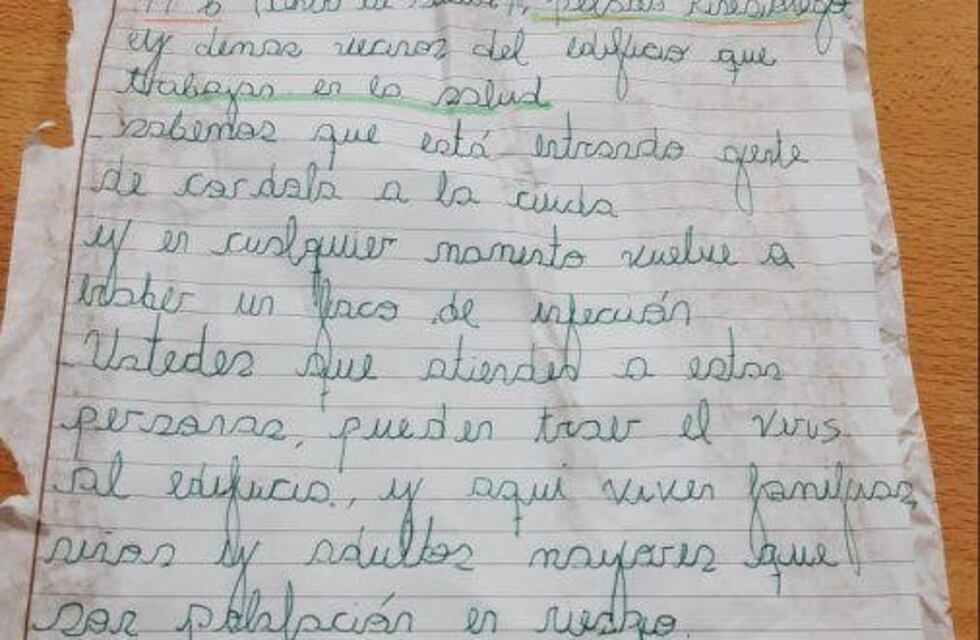 11 B
y demas vecinos del edificio que
trabajan en la salud
sabemos que está entrando gente
de cordoba a la ciuda
y en cualquier momento vuelve a
haber un foco de infeción
Ustedes que atienden a estas
personas, pueden traer el virus
al edificio, y aqui viven familias,
niños y adultos mayores que
son población en riesgo.